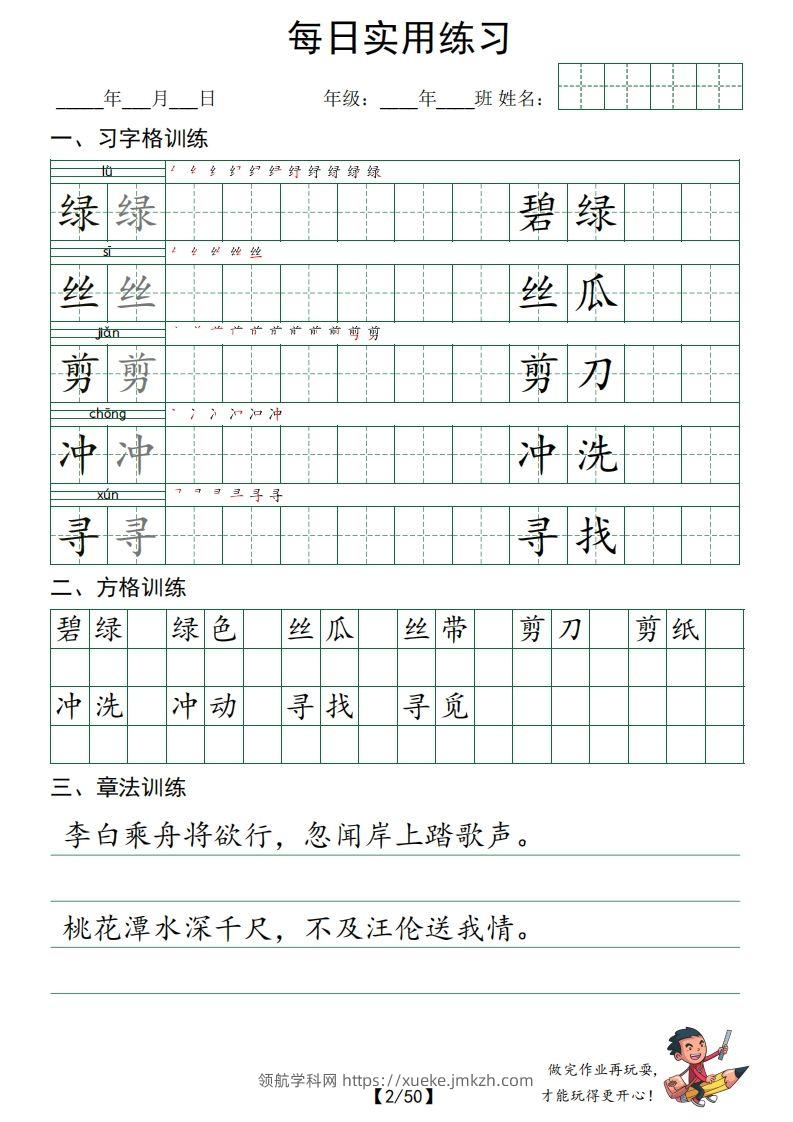 每日实用练习
_____年___月___日 年级：____年____班 姓名：
一、习字格训练
lǜ
绿 绿 碧 绿
sī
丝 丝 丝 瓜
jiǎn
剪 剪 剪 刀
chōng
冲 冲 冲 洗
xún
寻 寻 寻 找
二、方格训练
碧 绿 绿 色 丝 瓜 丝 带 剪 刀 剪 纸
冲 洗 冲 动 寻 找 寻 觅
三、章法训练
李白乘舟将欲行，忽闻岸上踏歌声。
桃花潭水深千尺，不及汪伦送我情。
做完作业再玩耍，
才能玩得更开心！
领航学科网 https://xueke.jmkzh.com
【2/50】